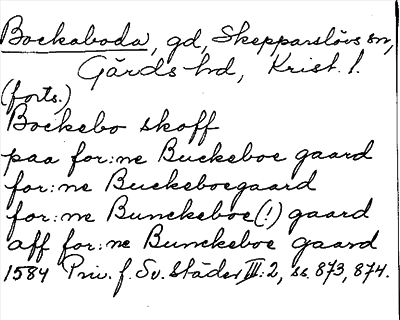 Bockaboda, gd, Skepparslövs sn,
Gärds hd, Krist. l.
(forts.)
Bockebo skoff
paa for:ne Buckeboe gaard
for:ne Buckeboegaard
for:ne Bunckeboe (!) gaard
aff for:ne Bunckeboe gaard
1584 Priv. f. Sv. städer III:2, ss. 873, 874.